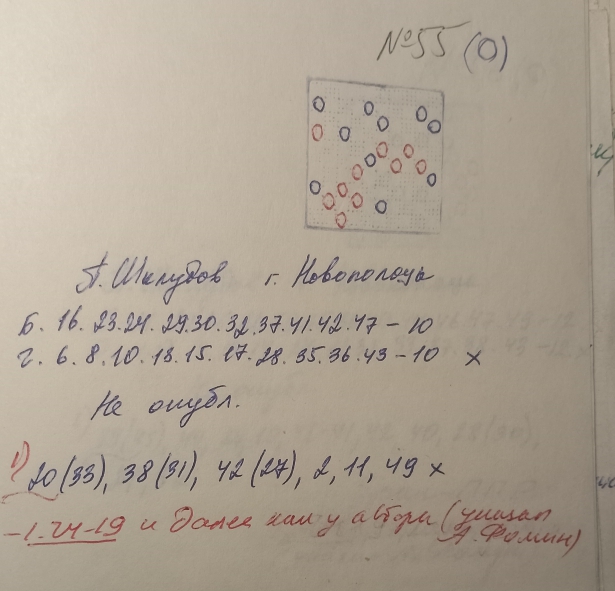 №55 (О)
А. Шклудов г. Новополоцк
Б. 16. 23.24. 29.30. 32.37.41.42.47 – 10
Ч. 6. 8. 10. 13. 15. 17. 28. 35. 36. 43 – 10 х
Не опубл.
1) 20 (33), 38 (31), 42 (27), 2, 11, 49 х
– 1. 24-19 и далее как у автора (указал
А. Фомин)